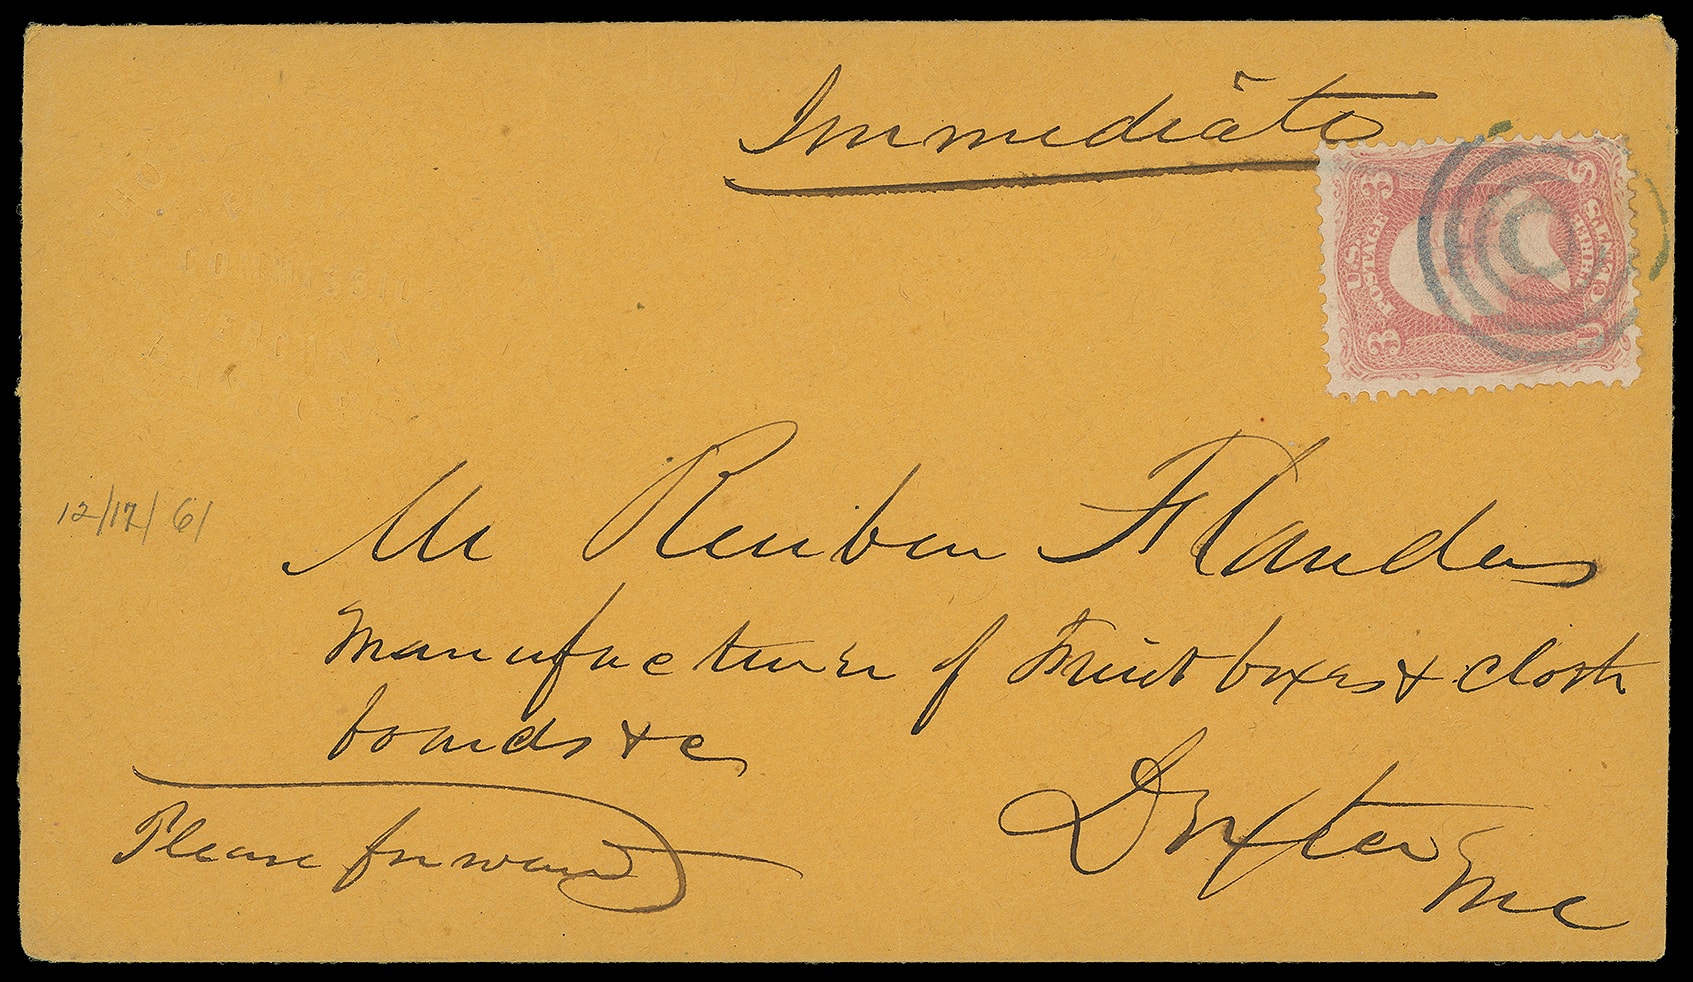 Immediate
U.S. POSTAGE
3 3
THREE CENTS
U S
12/17/61
Mr Reuben Flanders
Manufacturer of Fruit boxes & cloth
boards &c
Please forward
Dexter
Me